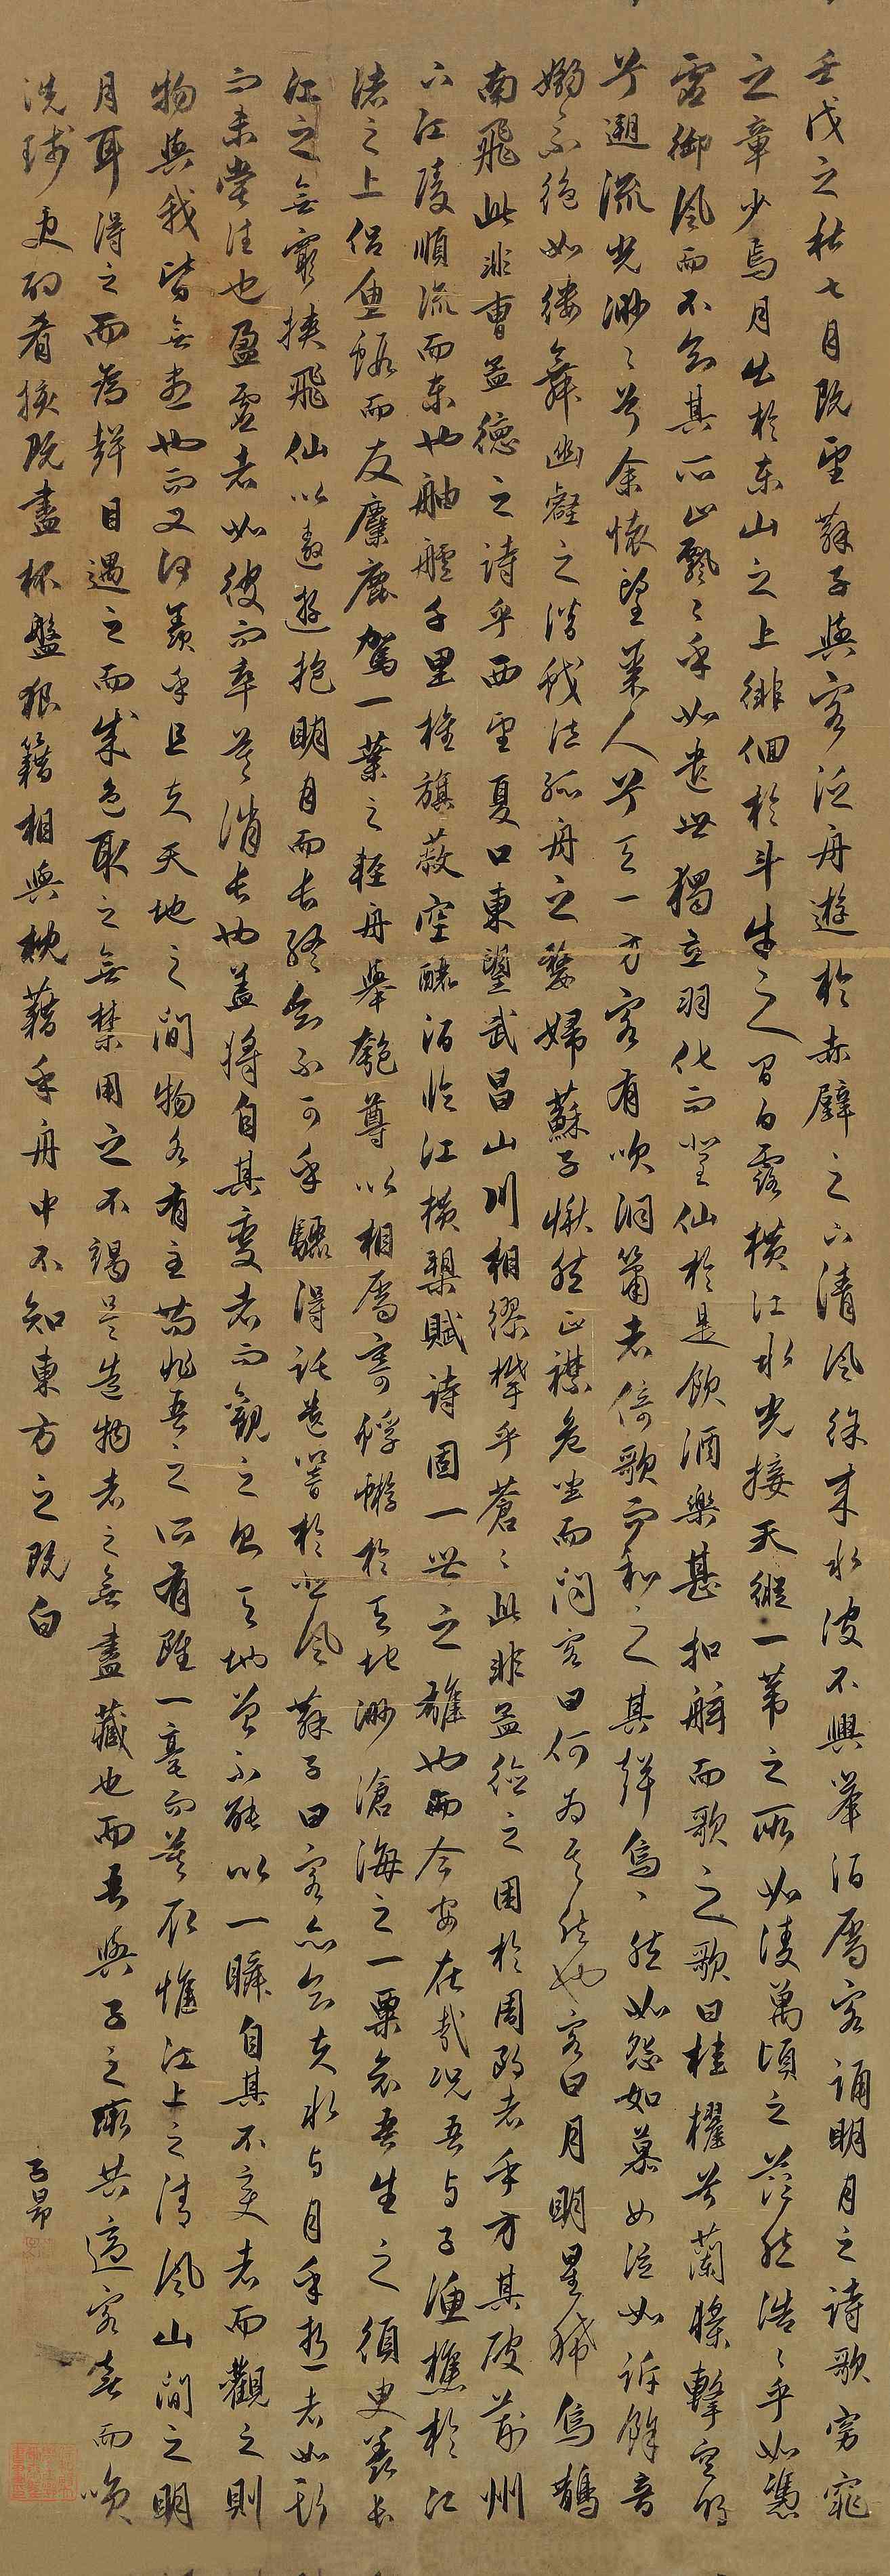 壬戌之秋七月既望蘇子與客泛舟遊於赤壁之下清風徐來水波不興舉酒屬客誦明月之詩歌窈窕
之章少焉月出於東山之上徘徊於斗牛之間白露橫江水光接天縱一葦之所如淩萬頃之茫然浩〻乎如馮
虛御風而不知其所止飄〻乎如遺世獨立羽化而登仙於是飲酒樂甚扣舷而歌之歌曰桂櫂兮蘭槳擊空明
兮遡流光渺〻兮余懷望美人兮天一方客有吹洞簫者倚歌而和之其聲嗚〻然如怨如慕如泣如訴餘音
嫋〻不絕如縷舞幽壑之潛蛟泣孤舟之嫠婦蘇子愀然正襟危坐而問客曰何為其然也客曰月明星稀烏鵲
南飛此非曹孟德之詩乎西望夏口東望武昌山川相繆鬱乎蒼〻此非孟德之困於周郎者乎方其破荊州
下江陵順流而東也舳艫千里旌旗蔽空釃酒臨江橫槊賦詩固一世之雄也而今安在哉況吾與子漁樵於江
渚之上侶魚蝦而友麋鹿駕一葉之輕舟舉匏尊以相屬寄蜉蝣於天地渺滄海之一粟哀吾生之須臾羨長
江之無窮挾飛仙以遨遊抱明月而長終知不可乎驟得託遺響於悲風蘇子曰客亦知夫水與月乎逝者如斯
而未嘗往也盈虛者如彼而卒莫消長也蓋將自其變者而觀之則天地曾不能以一瞬自其不變者而觀之則
物與我皆無盡也而又何羨乎且夫天地之間物各有主苟非吾之所有雖一毫而莫取惟江上之清風山間之明
月耳得之而為聲目遇之而成色取之無禁用之不竭是造物者之無盡藏也而吾與子之所共適客喜而笑
洗琖更酌肴核既盡杯盤狼籍相與枕藉乎舟中不知東方之既白
子昂